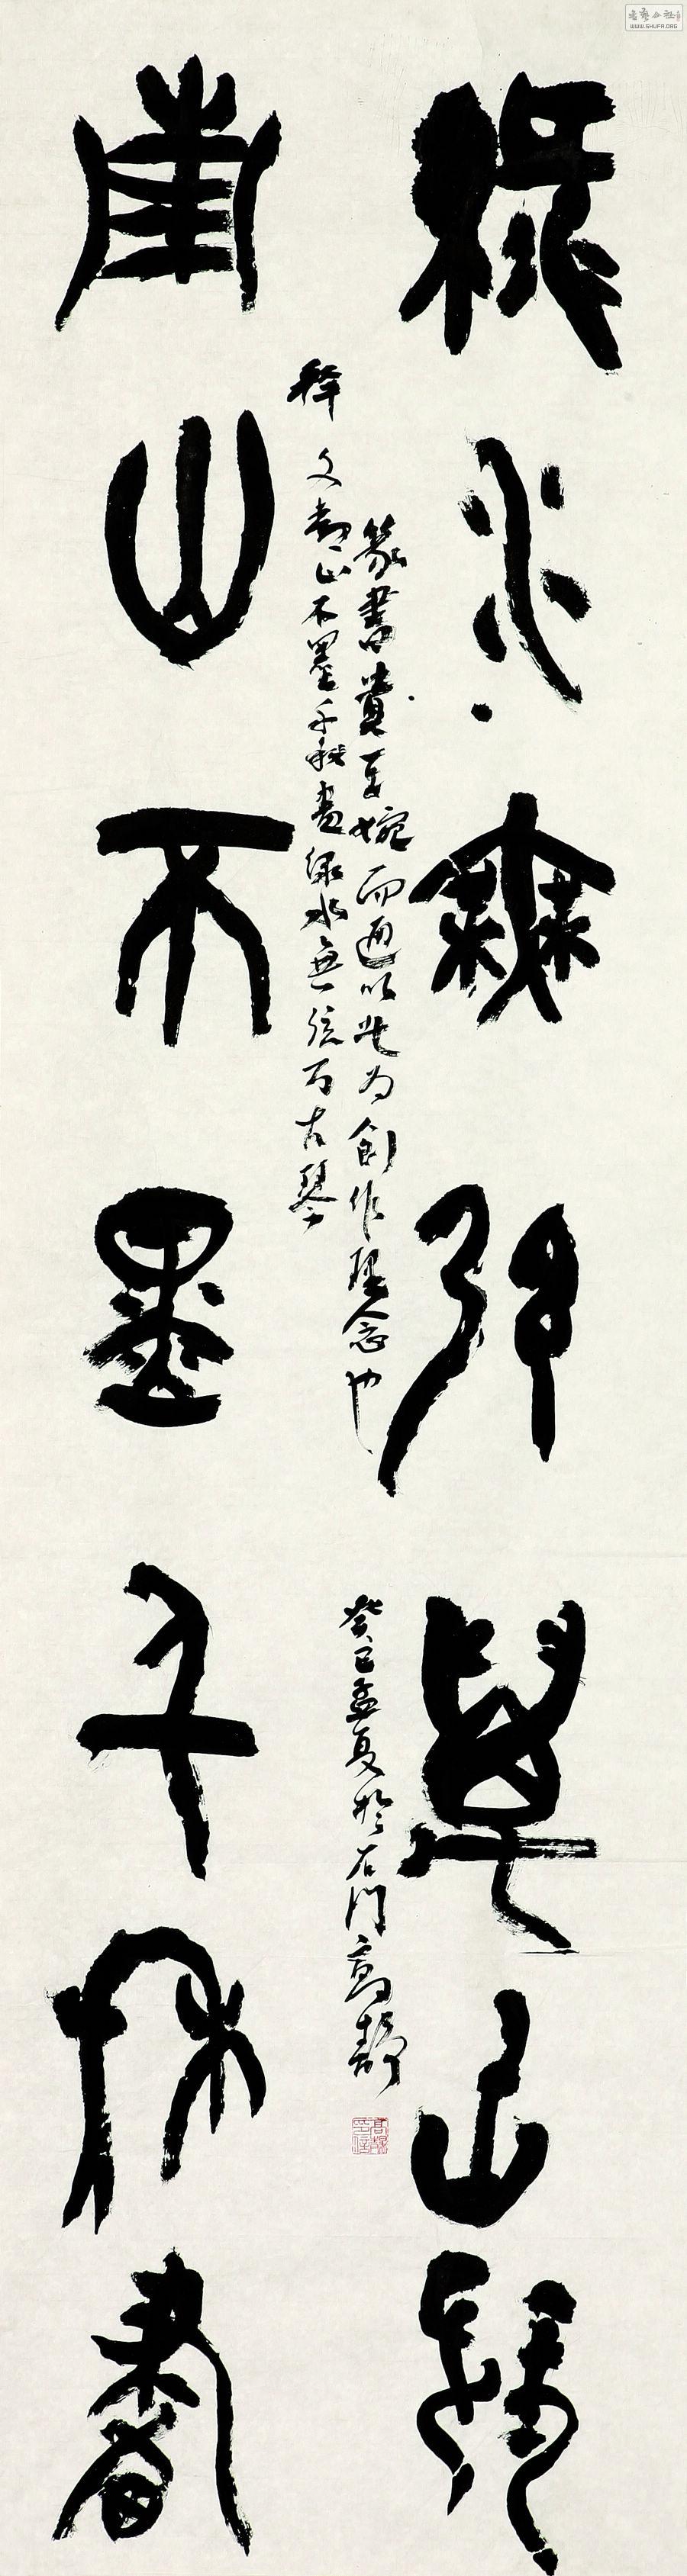 南山不墨千秋畫
釋文南山不墨千秋畫綠水無弦万古琴
篆書貴乎婉而通以此为創作理念也
癸巳孟夏於石門高靜
綠水無弦萬古琴
WWW.SHUFA.ORG